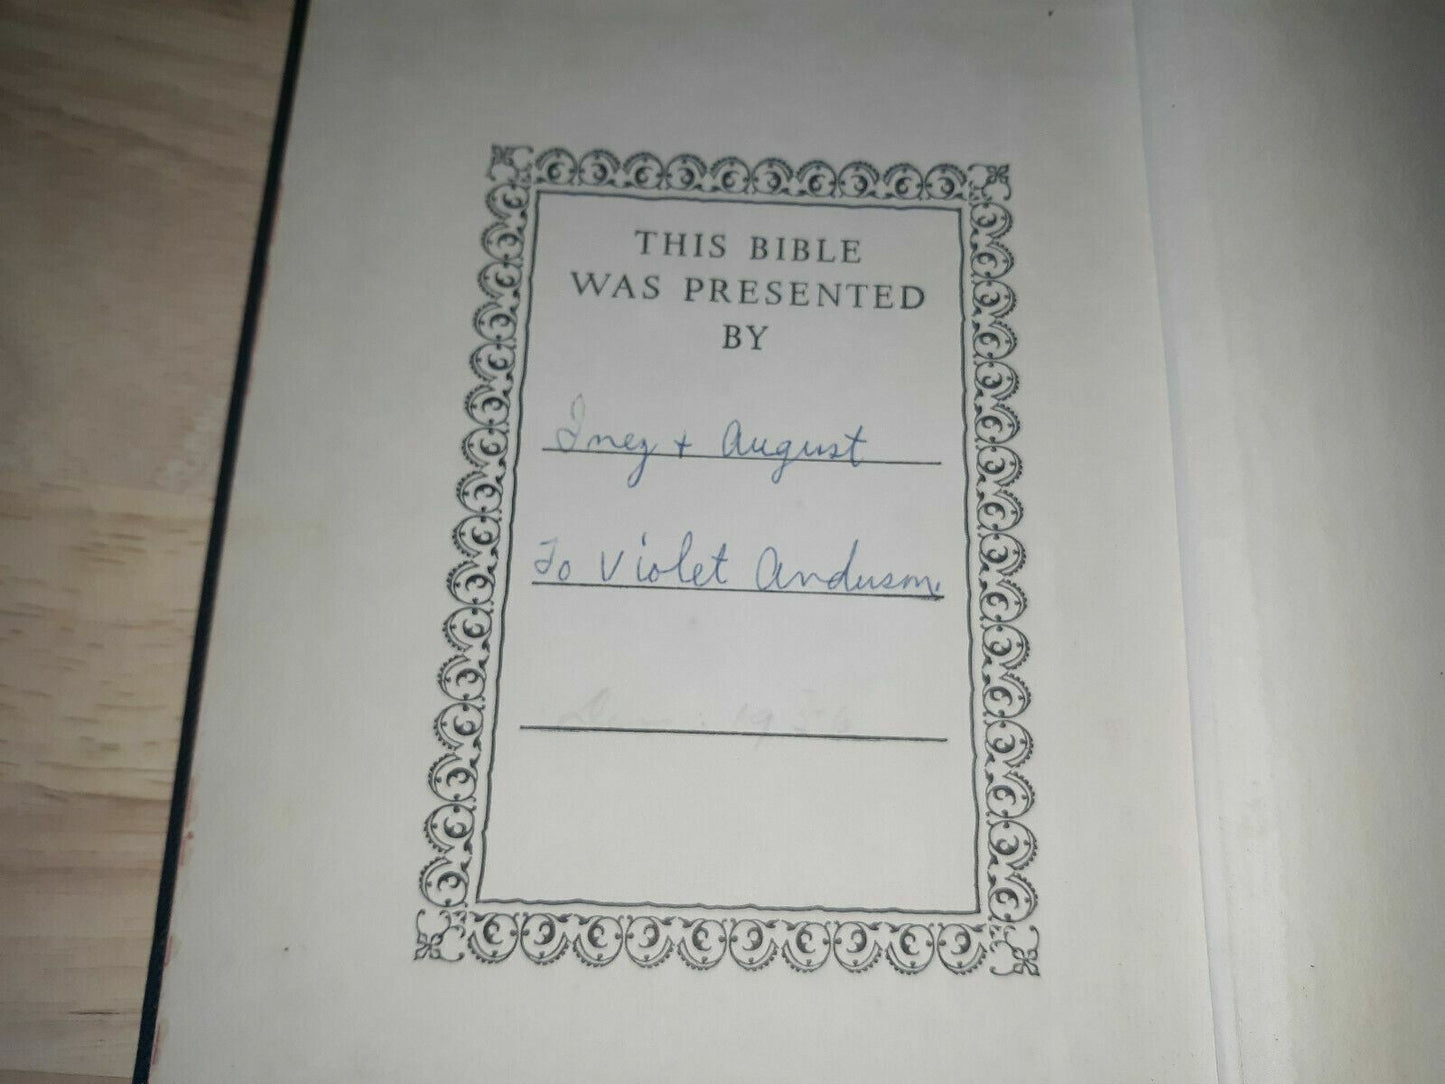 THIS BIBLE
WAS PRESENTED
BY
Inez + August
To Violet Anderson
1956